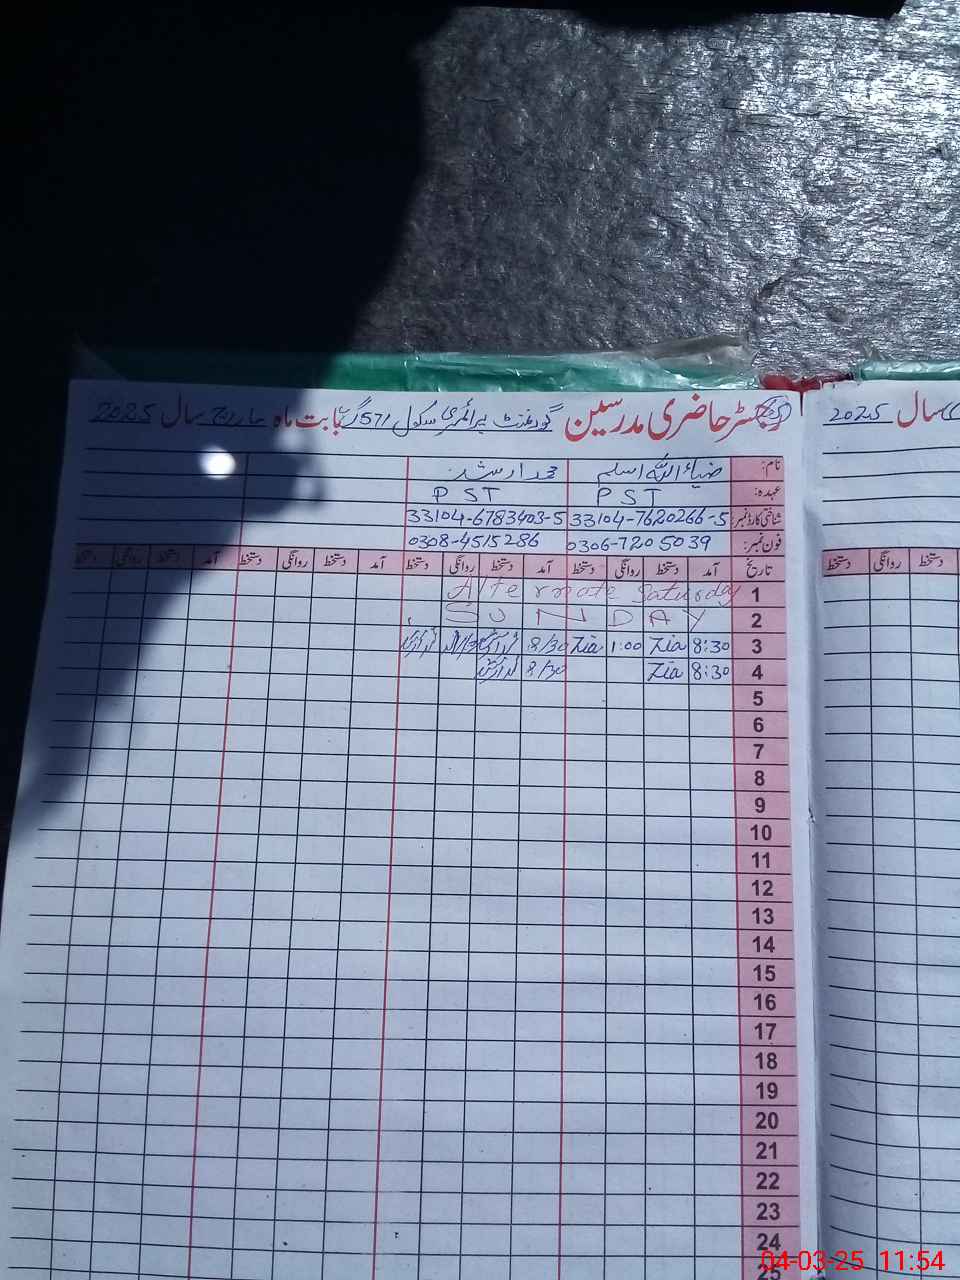 رجسٹر حاضری مدرسین گورنمنٹ پرائمری سکول 571 گ ب بابت ماہ مارچ سال 2025
نام: ضیاء اللہ اسلم محمد ارشد
عہدہ: PST PST
شناختی کارڈ نمبر: 33104-7620266-5 33104-6783403-5
فون نمبر: 0306-7205039 0308-4515286
تاریخ آمد دستخط روانگی دستخط آمد دستخط روانگی دستخط آمد دستخط روانگی دستخط آمد دستخط روانگی دستخط
1 Alternate Saturday
2 SUNDAY
3 8:30 Zia 1:00 Zia 8/30
4 8:30 Zia 8/30
5
6
7
8
9
10
11
12
13
14
15
16
17
18
19
20
21
22
23
24
25
سال 2025
روانگی دستخط
04-03-25 11:54